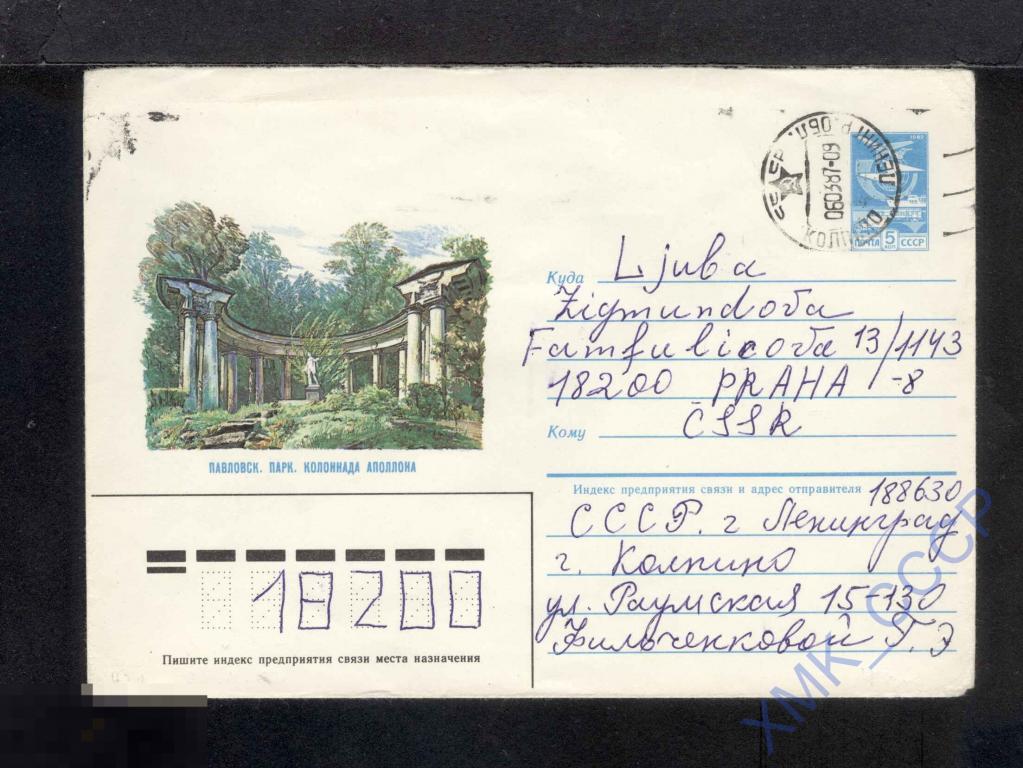 СССР ЛЕНИНГР. ОБЛ.
060387-09
КОЛПИНО
1982
ПОЧТА 5 КОП СССР
Куда Ljuba
Zigmundova
Famfulicova 13/1143
18200 PRAHA -8
Кому ČSSR
ПАВЛОВСК. ПАРК. КОЛОННАДА АПОЛЛОНА
Индекс предприятия связи и адрес отправителя 188630
СССР. г Ленинград
г. Колпино
ул. Раумская 15-130
Фильченковой Г. Э
18200
Пишите индекс предприятия связи места назначения
ХМК_СССР